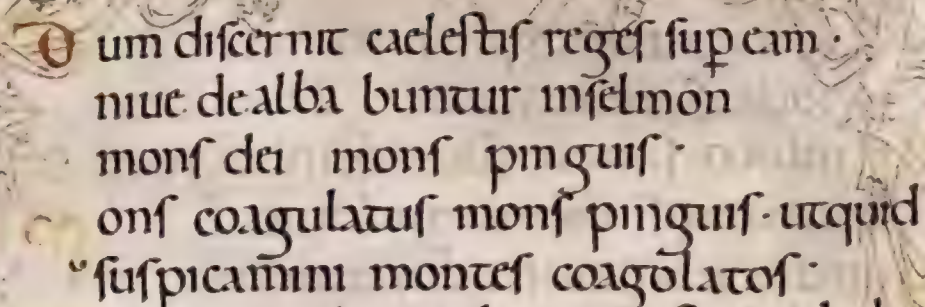 Dum discernit caelestis reges sup eam·
niue dealba buntur inselmon
mons dei mons pinguis·
ons coagulatus mons pinguis· utquid
suspicamini montes coagolatos·